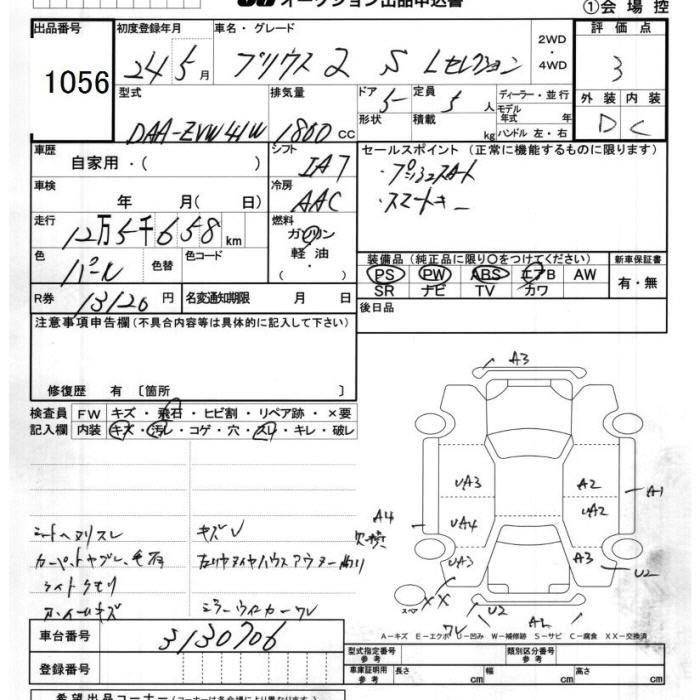 オークション出品申込書
①会場控
出品番号 初度登録年月 車名・グレード 2WD・4WD 評価点
1056 24 5月 プリウス 2 S Lセレクション 3
型式 排気量 ドア 5 定員 5人 ディーラー・並行 外装 内装
DAA-ZVW41W 1800 CC 形状 積載 kg モデル年式 年 ハンドル 左・右 D C
車歴 シフト セールスポイント (正常に機能するものに限ります)
自家用・( ) IA7 ・プッシュスタート
車検 冷房 ・スマートキー
年 月( 日) AAC
走行 燃料
12万5千658km ガソリン
軽油
・( )
色 色替 色コード
パール
装備品 (純正品に限り○をつけてください) 新車保証書
PS PW ABS エアB AW 有・無
SR ナビ TV カワ
R券 13120円 名変通知期限 月 日 後日品
注意事項申告欄 (不具合内容等は具体的に記入して下さい)
修復歴 有 〔箇所 〕
検査員 FW キズ・飛石・ヒビ割・リペア跡・×要
記入欄 内装 キズ・汚レ・コゲ・穴・スレ・キレ・破レ
シートヘタリスレ キズレ
カーペットヤブレ、毛有
ライトクモリ
ホイールキズ ミラーウィンカーワレ
A3
UA3 A2
UA2
A1
A4 UA4
欠損
UA3 A3
U2
スペア XX U2
ワレ
A-キズ E-エクボ U-凹み W-補修跡 S-サビ C-腐食 XX-交換済
車台番号 3130706
登録番号
型式指定番号 参考 類別区分番号 参考
車庫証明用 参考 長さ cm 幅 cm 高さ cm
希望出品コーナー (コーナーは各会場により異なります)